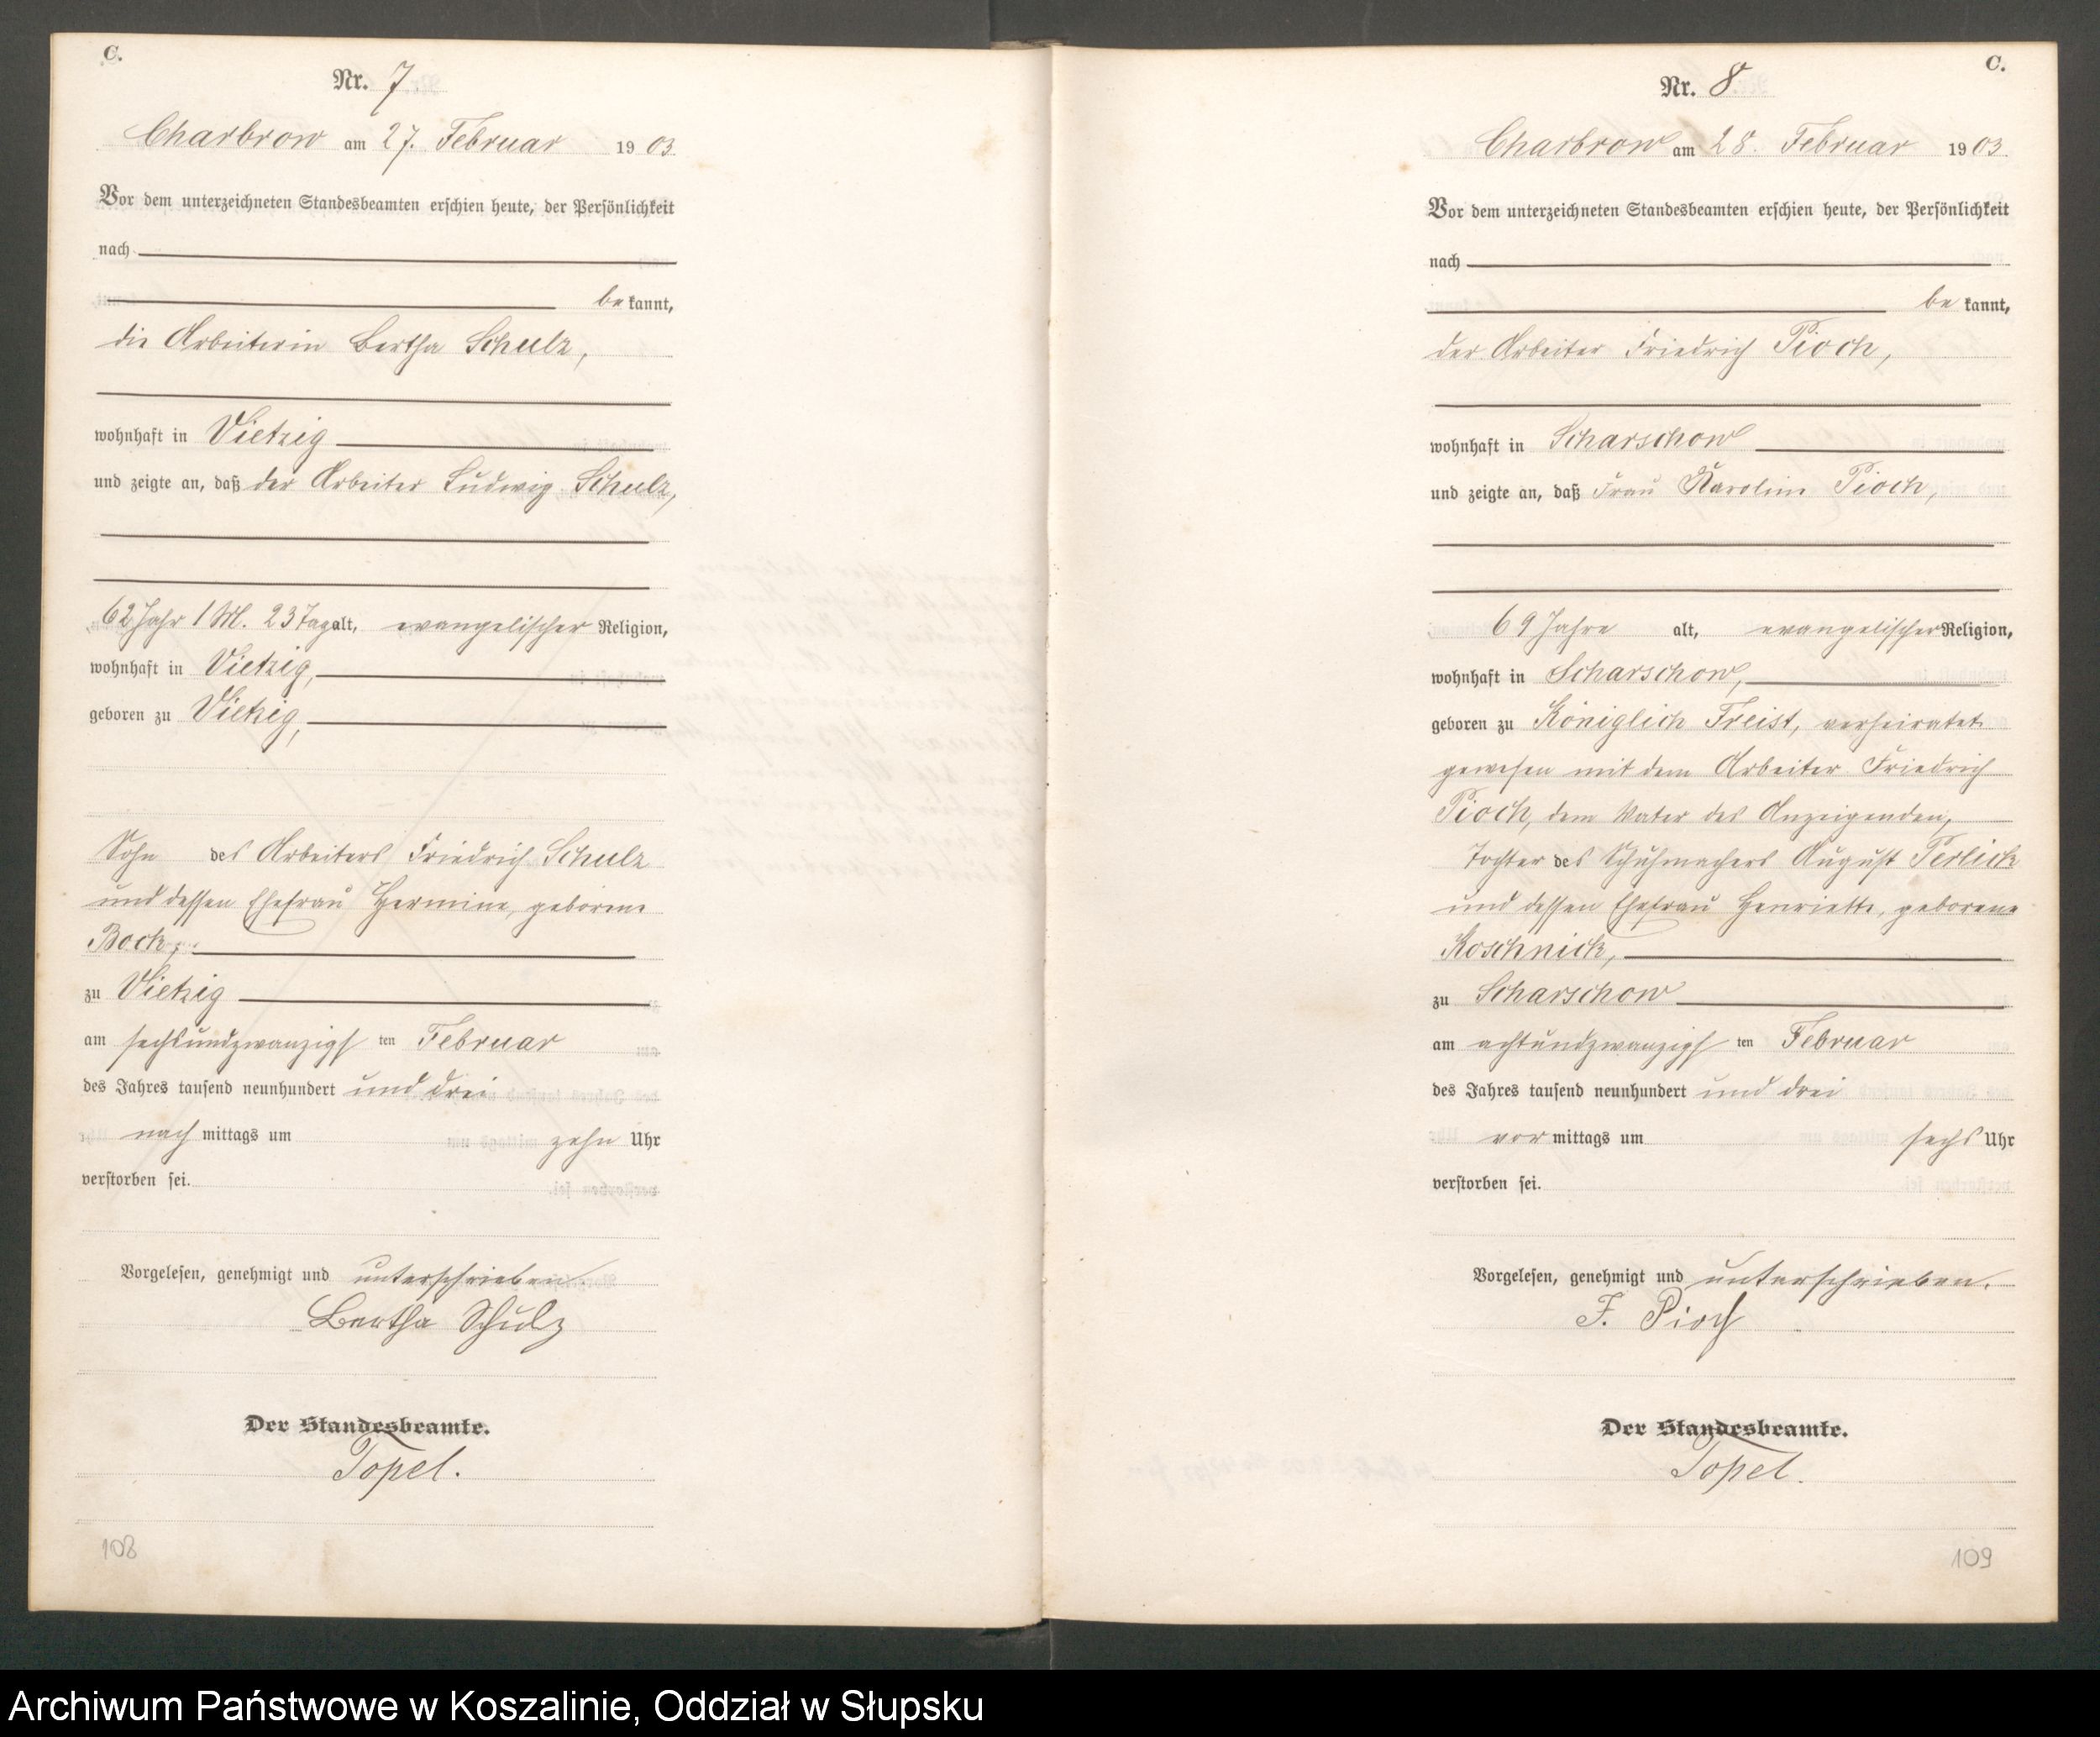 C.
Nr. 7
Charbrow am 27. Februar 1903
Vor dem unterzeichneten Standesbeamten erschien heute, der Persönlichkeit
nach
bekannt,
die Arbeiterin Bertha Schulz,
wohnhaft in Vietzig
und zeigte an, daß der Arbeiter Ludwig Schulz,
62 Jahr 1 M. 23 Tag alt, evangelischer Religion,
wohnhaft in Vietzig,
geboren zu Vietzig,
Sohn des Arbeiters Friedrich Schulz
und dessen Ehefrau Hermine, geborene
Bock,
zu Vietzig
am sechsundzwanzigsten Februar
des Jahres tausend neunhundert und drei
nachmittags um zehn Uhr
verstorben sei.
Vorgelesen, genehmigt und unterschrieben.
Bertha Schulz
Der Standesbeamte.
Topel.
108
C.
Nr. 8
Charbrow am 28. Februar 1903
Vor dem unterzeichneten Standesbeamten erschien heute, der Persönlichkeit
nach
bekannt,
der Arbeiter Friedrich Pioch,
wohnhaft in Scharschow
und zeigte an, daß Frau Karoline Pioch,
69 Jahre alt, evangelischer Religion,
wohnhaft in Scharschow,
geboren zu Königlich Freist, verheiratet
gewesen mit dem Arbeiter Friedrich
Pioch, dem Vater des Anzeigenden,
Tochter des Schuhmachers August Perlick
und dessen Ehefrau Henriette, geborene
Koschnick,
zu Scharschow
am achtundzwanzigsten Februar
des Jahres tausend neunhundert und drei
vormittags um sechs Uhr
verstorben sei.
Vorgelesen, genehmigt und unterschrieben.
F. Pioch
Der Standesbeamte.
Topel.
109
Archiwum Państwowe w Koszalinie, Oddział w Słupsku